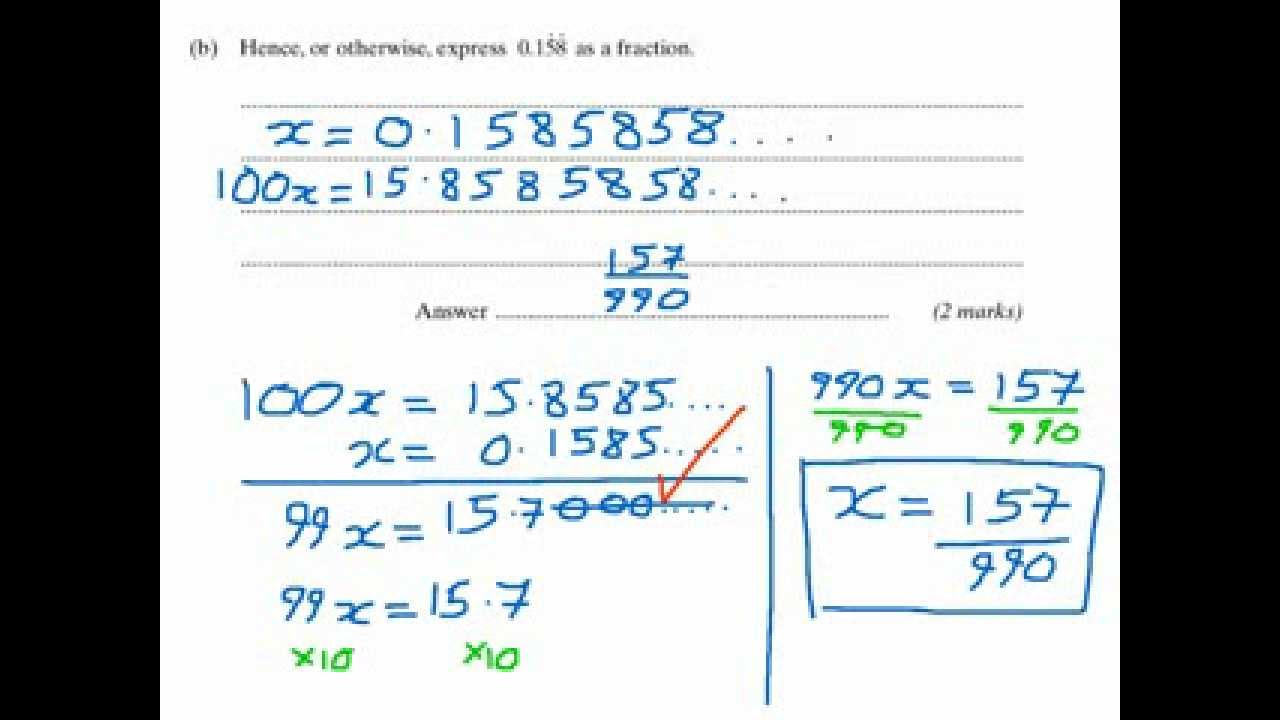 (b) Hence, or otherwise, express 0.15̇8̇ as a fraction.
x = 0.1585858....
100x = 15.8585858....
157
990
Answer (2 marks)
100x = 15.8585....
x = 0.1585.....
99x = 15.7000.....
99x = 15.7
×10 ×10
990x = 157
990 990
x = 157
990